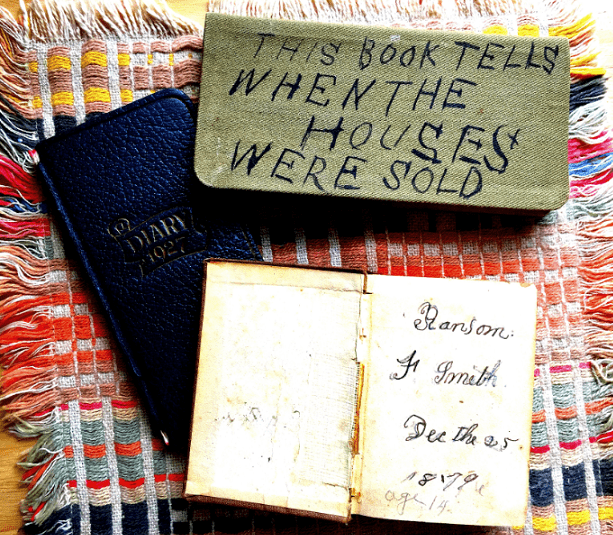 THIS BOOK TELLS
WHEN THE
HOUSES
WERE SOLD
DIARY
1927
Ransom.
F Smith.
Dec the 25.
1879
age 14